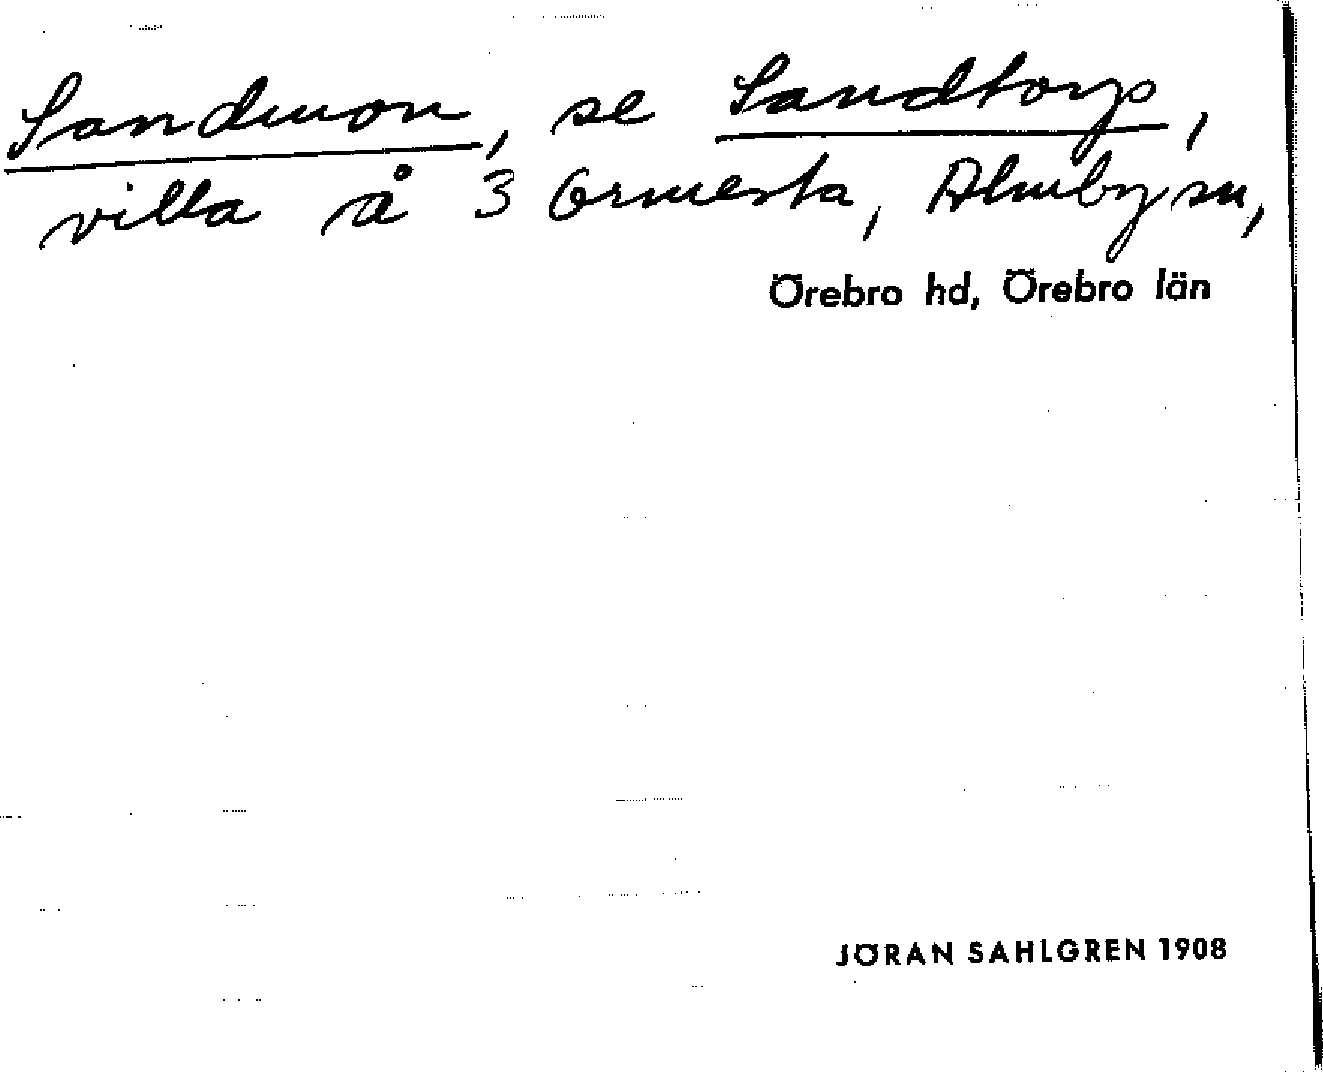 Sandmon, se Sandtorp,
villa å 3 Ormesta, Almby sn,
Örebro hd, Örebro län
JÖRAN SAHLGREN 1908